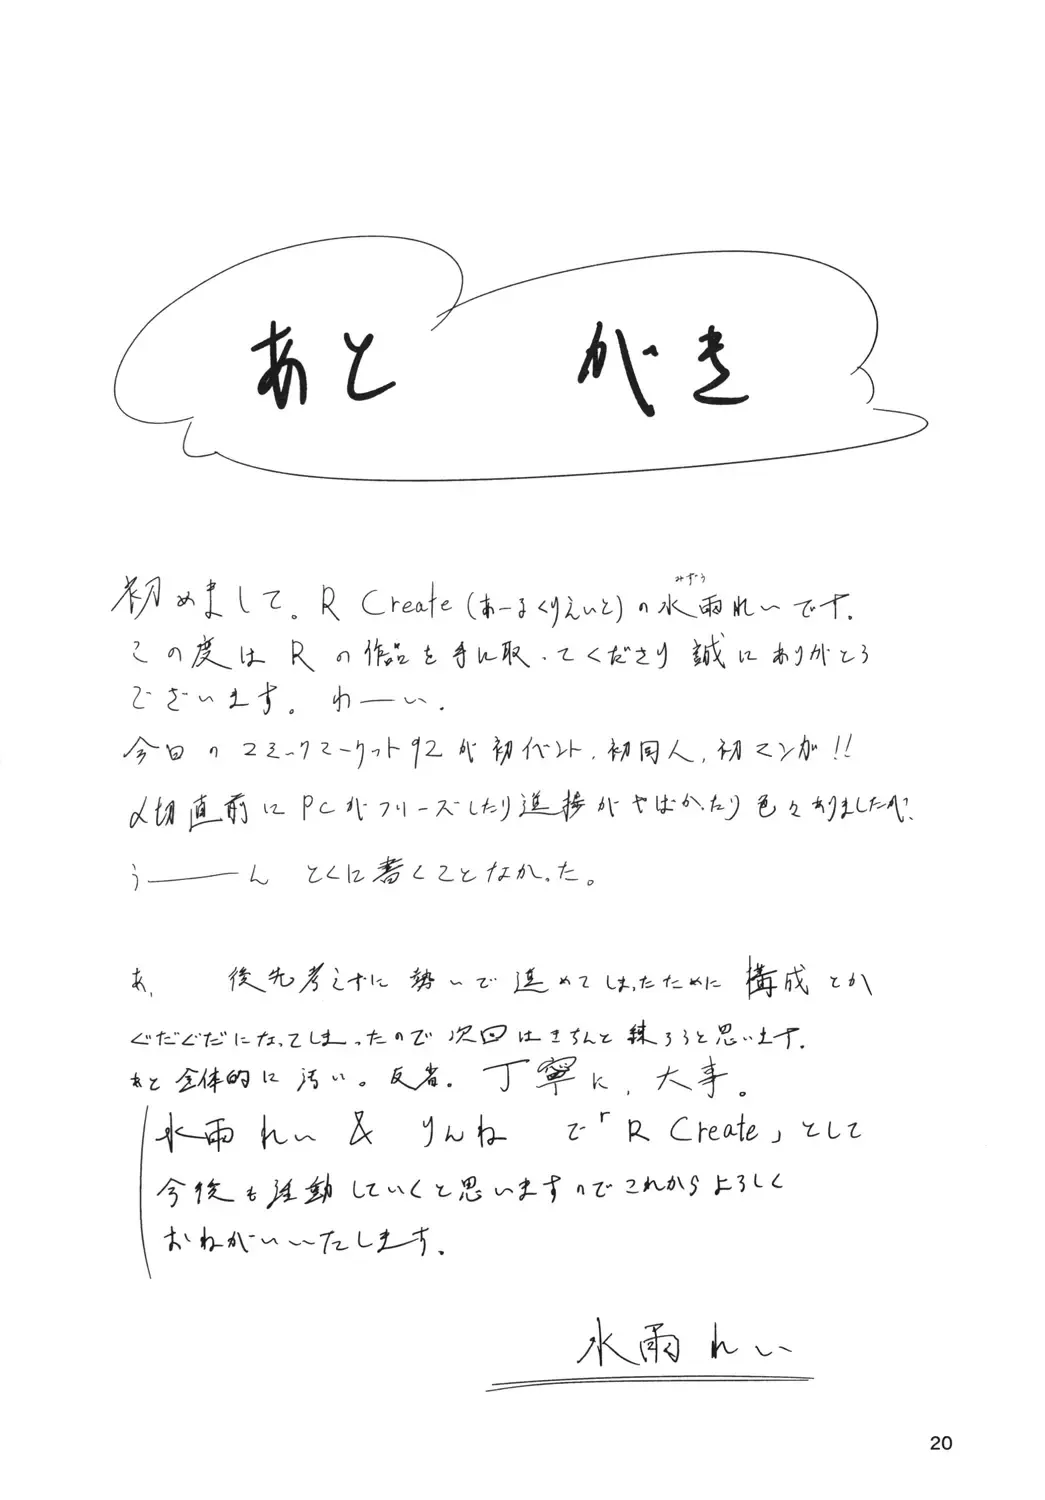 あとがき
みずう
初めまして。R Create(あーるくりえいと)の水雨れいです。
この度は R の作品を手に取ってくださり 誠にありがとう
ございます。 わーい.
今日のコミックマーケット92が初イベント、初同人、初マンガ!!
〆切直前にPCがフリーズしたり進捗がやばかったり色々ありましたが、
う―――ん とくに書くことなかった。
あ、 後先考えずに勢いで進めてしまったために構成とか
ぐだぐだになってしまったので次回はきちんと練ろうと思います。
あと全体的に汚い。反省。丁寧に、大事。
水雨れい & りんね で「R Create」として
今後も活動していくと思いますのでこれからよろしく
おねがいいたします。
水雨れい
20